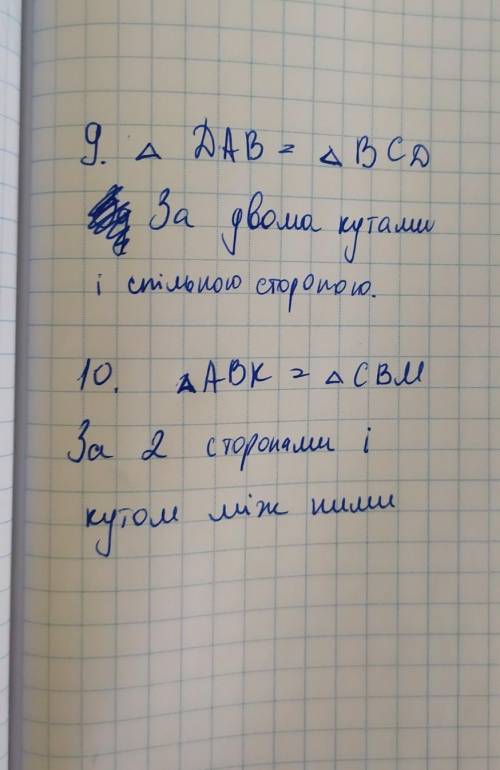 9. △ DАВ = △ ВСД
За двома кутами
і спільною стороною.
10. △АВК = △СВМ
За 2 сторонами і
кутом між ними